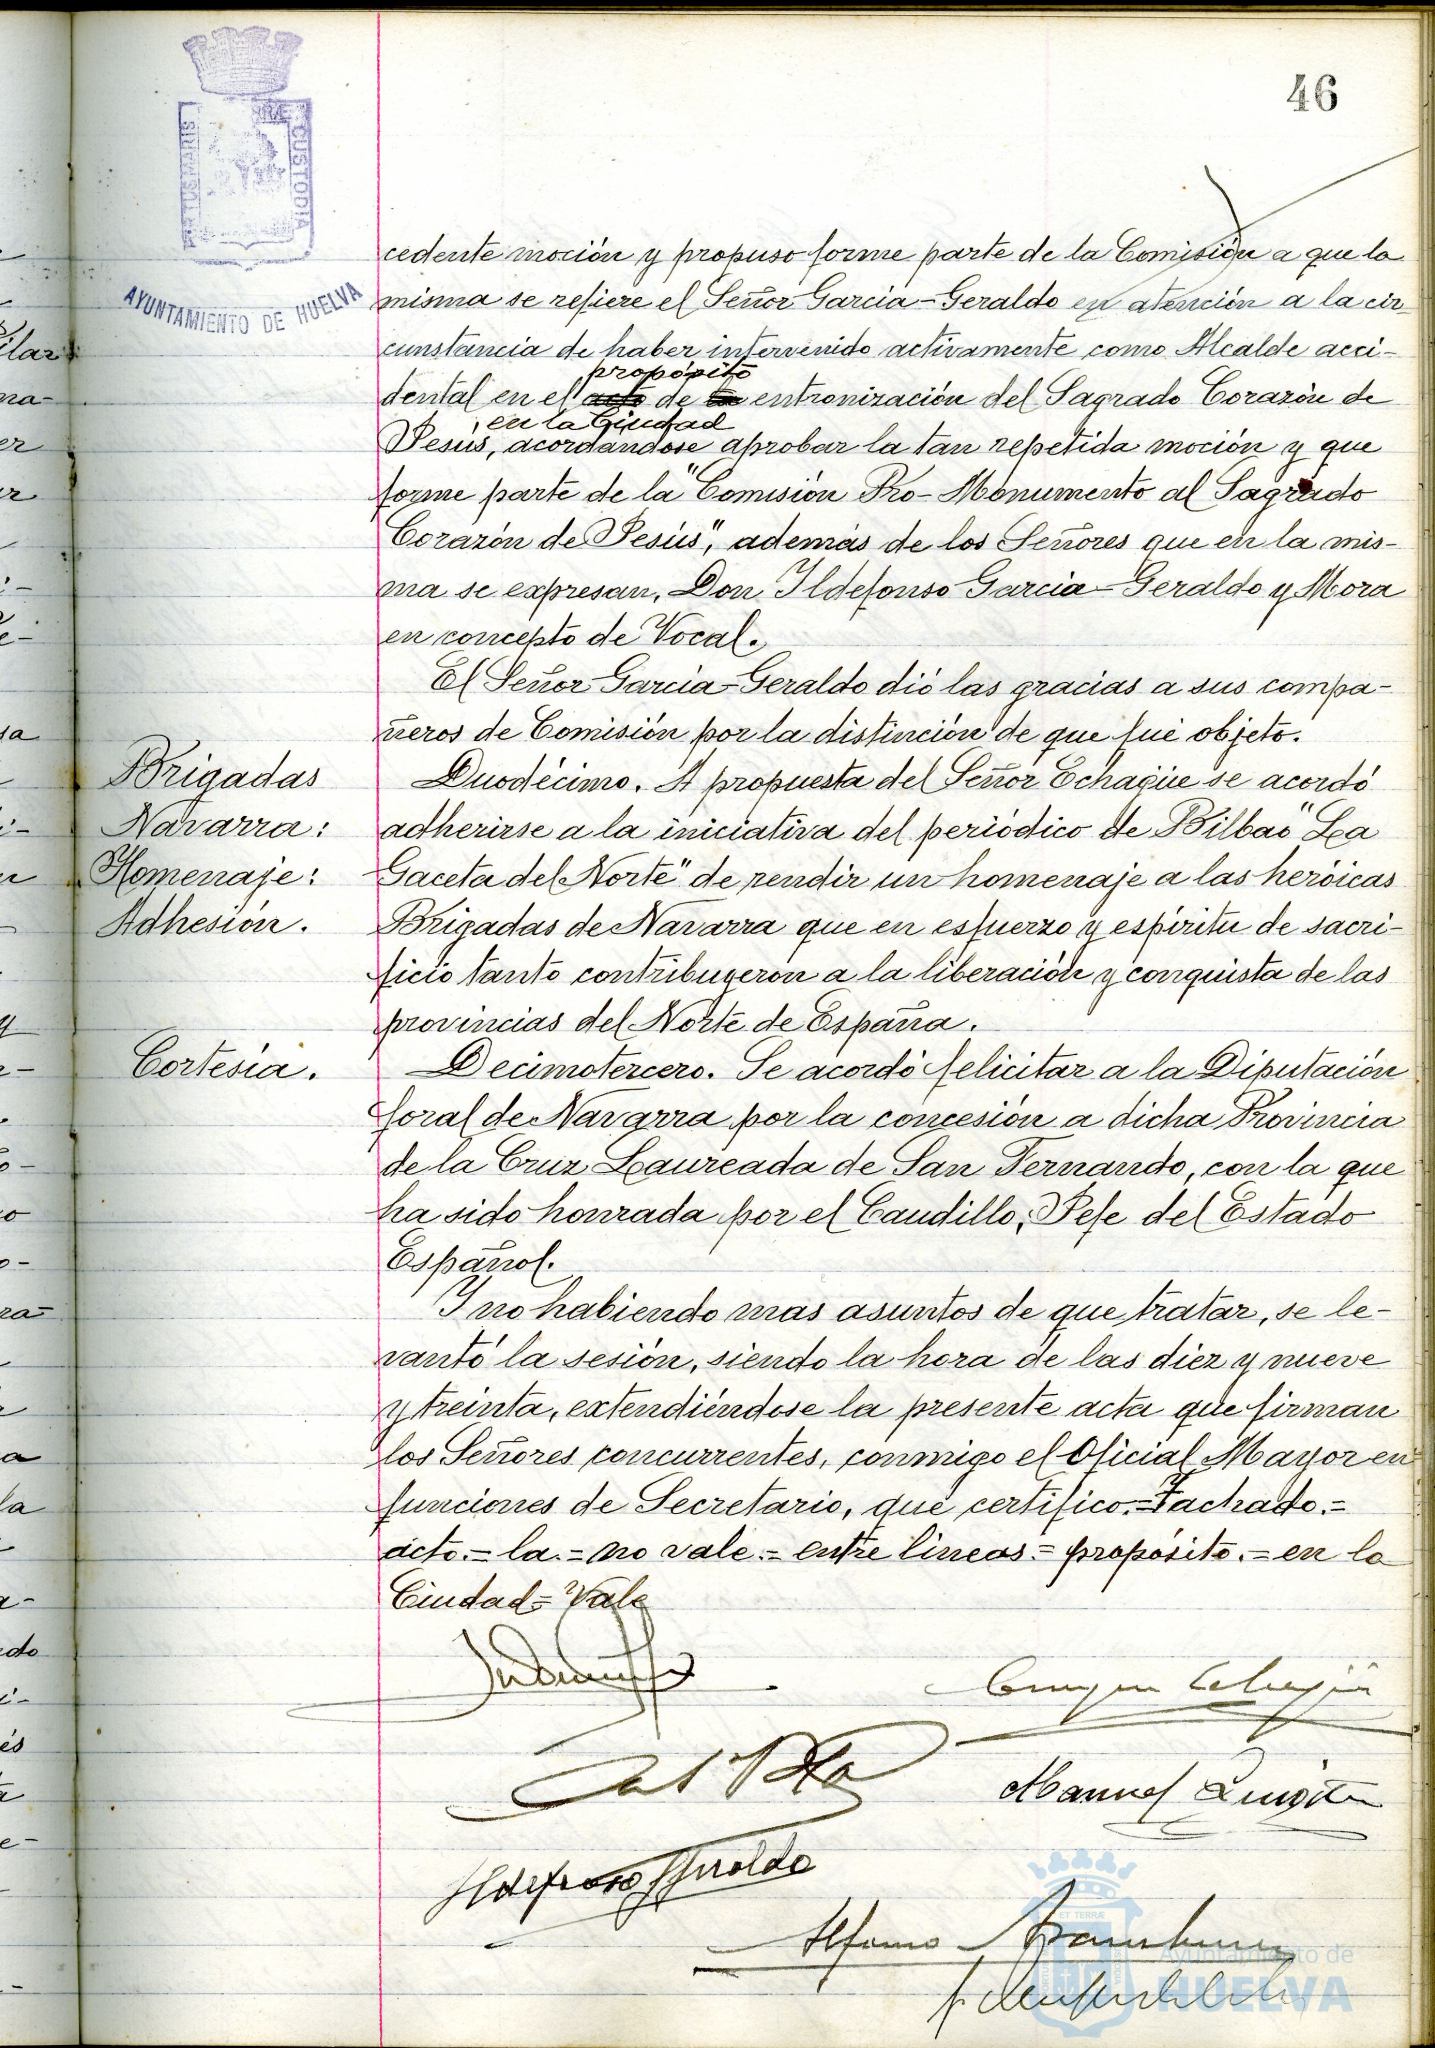 46
PORTUS MARIS
ET TERRÆ
CUSTODIA
AYUNTAMIENTO DE HUELVA
cedente moción y propuso forme parte de la Comisión a que la
misma se refiere el Señor García-Geraldo en atención a la cir-
cunstancia de haber intervenido activamente como Alcalde acci-
propósito
dental en el acto de la entronización del Sagrado Corazón de
en la Ciudad
Jesús, acordándose aprobar la tan repetida moción y que
forme parte de la "Comisión Pro-Monumento al Sagrado
Corazón de Jesús", además de los Señores que en la mis-
ma se expresan, Don Ildefonso García-Geraldo y Mora
en concepto de Vocal.
El Señor García-Geraldo dió las gracias a sus compa-
ñeros de Comisión por la distinción de que fué objeto.
Brigadas
Navarra:
Homenaje:
Adhesión.
Duodécimo. A propuesta del Señor Echagüe se acordó
adherirse a la iniciativa del periódico de Bilbao "La
Gaceta del Norte" de rendir un homenaje a las heróicas
Brigadas de Navarra que en esfuerzo y espíritu de sacri-
ficio tanto contribuyeron a la liberación y conquista de las
provincias del Norte de España.
Cortesía.
Decimotercero. Se acordó felicitar a la Diputación
foral de Navarra por la concesión a dicha Provincia
de la Cruz Laureada de San Fernando, con la que
ha sido honrada por el Caudillo, Jefe del Estado
Español.
Y no habiendo mas asuntos de que tratar, se le-
vantó la sesión, siendo la hora de las diez y nueve
y treinta, extendiéndose la presente acta que firman
los Señores concurrentes, conmigo el Oficial Mayor en
funciones de Secretario, que certifico.=Tachado.=
acto.=la.=no vale.=entre líneas.=propósito.=en la
Ciudad=Vale
Manuel
Ildefonso Geraldo
Alfonso
ET TERRÆ
Ayuntamiento de
HUELVA